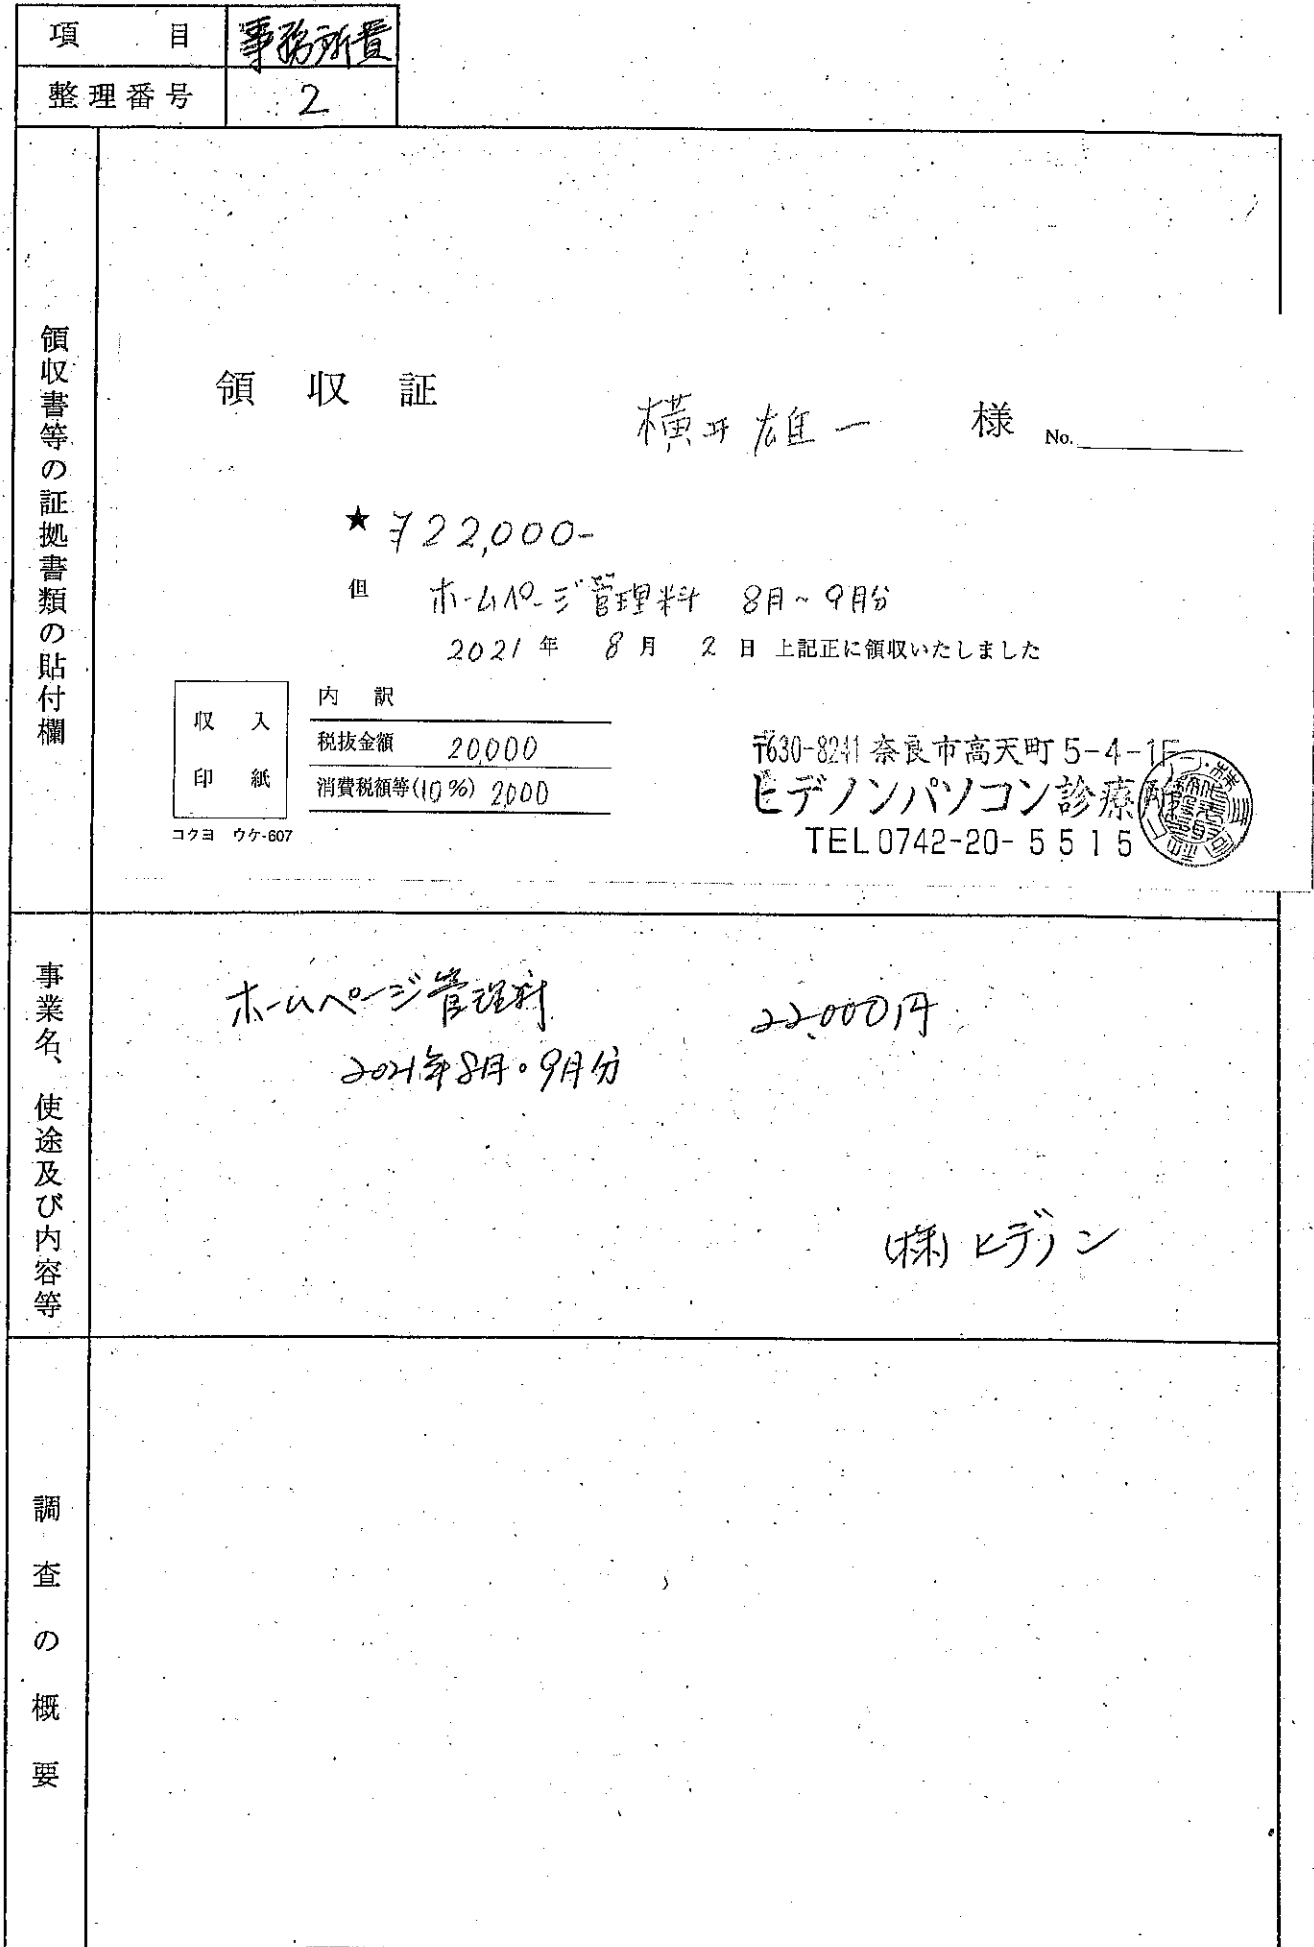 項目 事務所費
整理番号 2
領収書等の証拠書類の貼付欄
領収証
横井雄一 様 No.
★ ¥22,000-
但 ホームページ管理料 8月~9月分
2021年 8月 2日 上記正に領収いたしました
収入
印紙
コクヨ ウケ-607
内訳
税抜金額 20,000
消費税額等(10%) 2,000
〒630-8241 奈良市高天町5-4-1F
ヒデノンパソコン診療所
TEL0742-20-5515
事業名、使途及び内容等
ホームページ管理料 22,000円
2021年8月・9月分
(株)ヒデノン
調査の概要